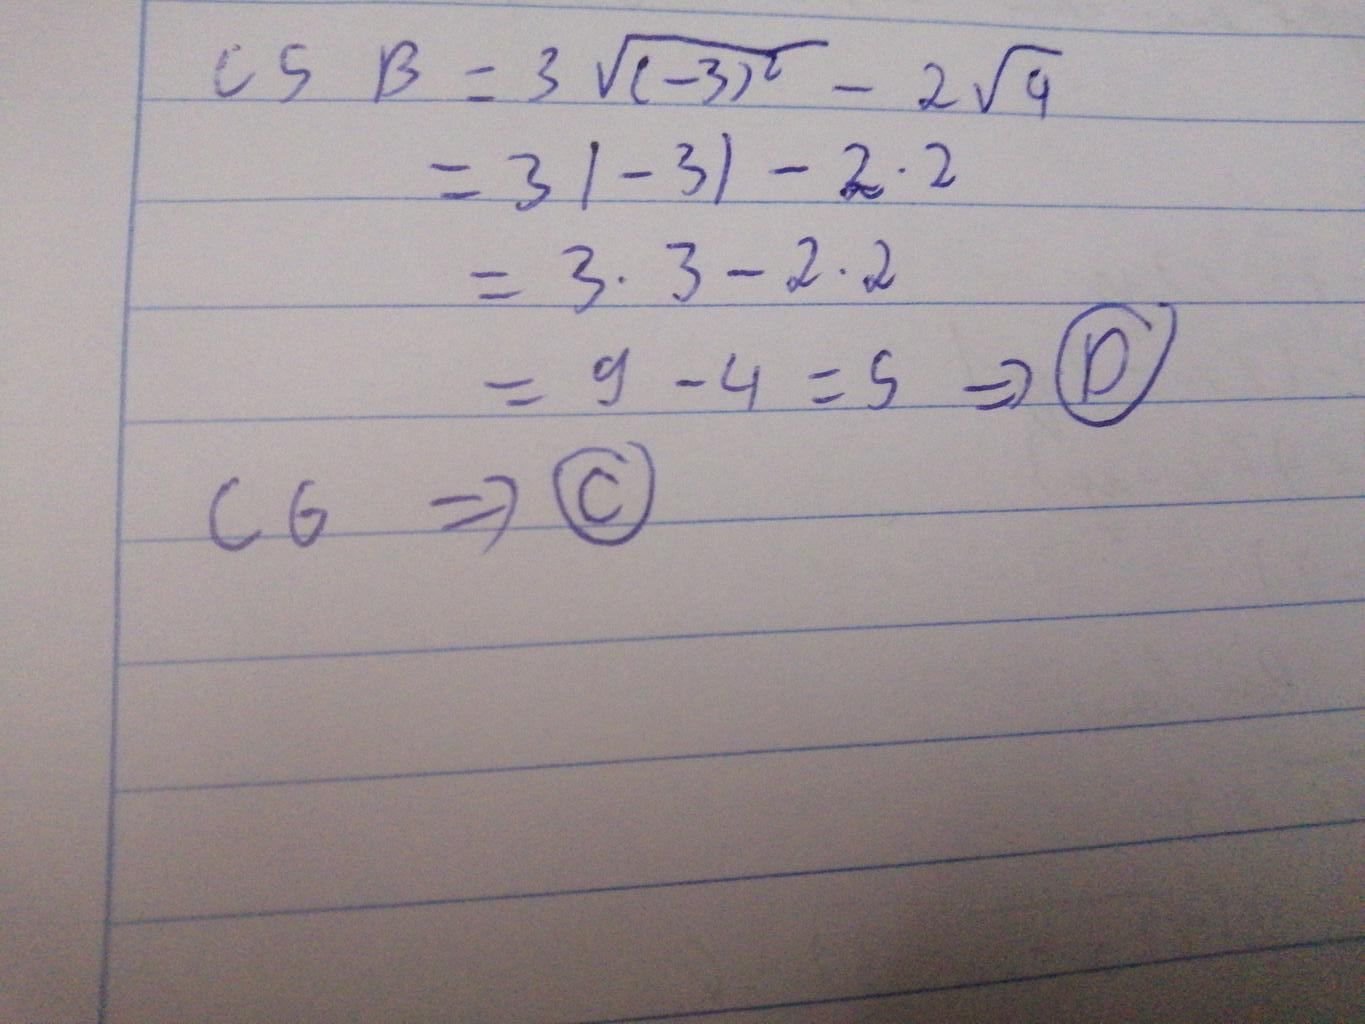 C5 B = 3 √(-3)² - 2√4
= 3 |-3| - 2.2
= 3.3 - 2.2
= 9 - 4 = 5 => D
C6 => C